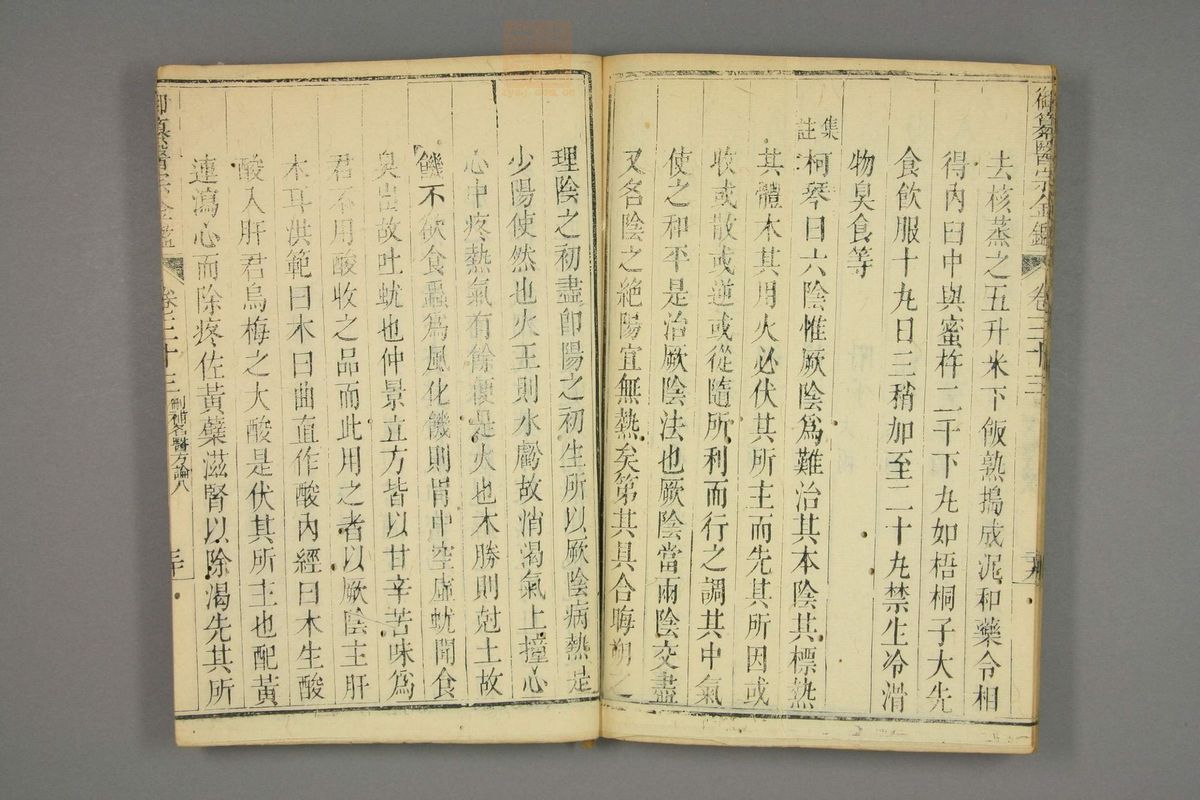 御纂醫宗金鑑 卷三十三
去核蒸之五升米下飯熟搗成泥和藥令相
得內臼中與蜜杵二千下丸如梧桐子大先
食飲服十丸日三稍加至二十丸禁生冷滑
物臭食等
集註
柯琴曰六陰惟厥陰爲難治其本陰其標熱
其體木其用火必伏其所主而先其所因或
收或散或逆或從隨所利而行之調其中氣
使之和平是治厥陰法也厥陰當兩陰交盡
又名陰之絶陽宜無熱矣第其具合晦朔之
理陰之初盡卽陽之初生所以厥陰病熱是
少陽使然也火王則水虧故消渴氣上撞心
心中疼熱氣有餘便是火也木勝則尅土故
饑不欲食蟲爲風化饑則胃中空虛蚘聞食
臭出故吐蚘也仲景立方皆以甘辛苦味爲
君不用酸收之品而此用之者以厥陰主肝
木耳洪範曰木曰曲直作酸內經曰木生酸
酸入肝君烏梅之大酸是伏其所主也配黃
連瀉心而除疼佐黃蘗滋腎以除渴先其所
御纂醫宗金鑑 卷三十三 刪補名醫方論八 三十